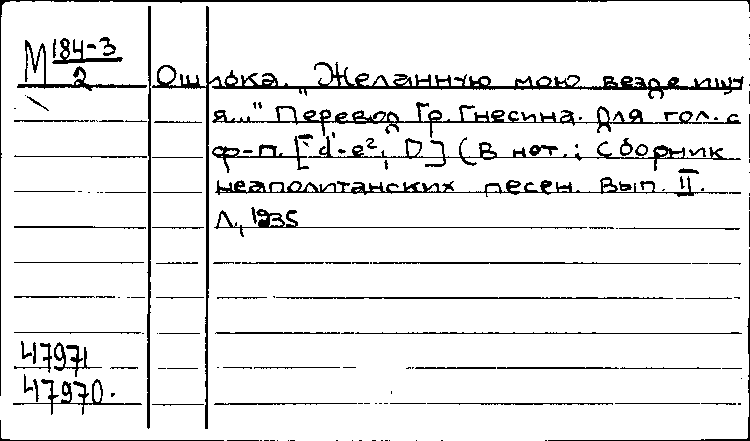 М 184-3/2
Ошибка. "Желанную мою везде ищу
я..." Перевод Гр. Гнесина. Для гол. с
ф-п. [d¹-e², D] (В нот.: Сборник
неаполитанских песен. Вып. II.
Л., 1935
47971
47970.